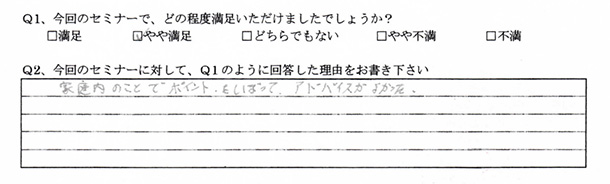 Q1、今回のセミナーで、どの程度満足いただけましたでしょうか?
□満足 ☑やや満足 □どちらでもない □やや不満 □不満
Q2、今回のセミナーに対して、Q1のように回答した理由をお書き下さい
家庭内のことでポイントをしぼって、アドバイスがよかった。